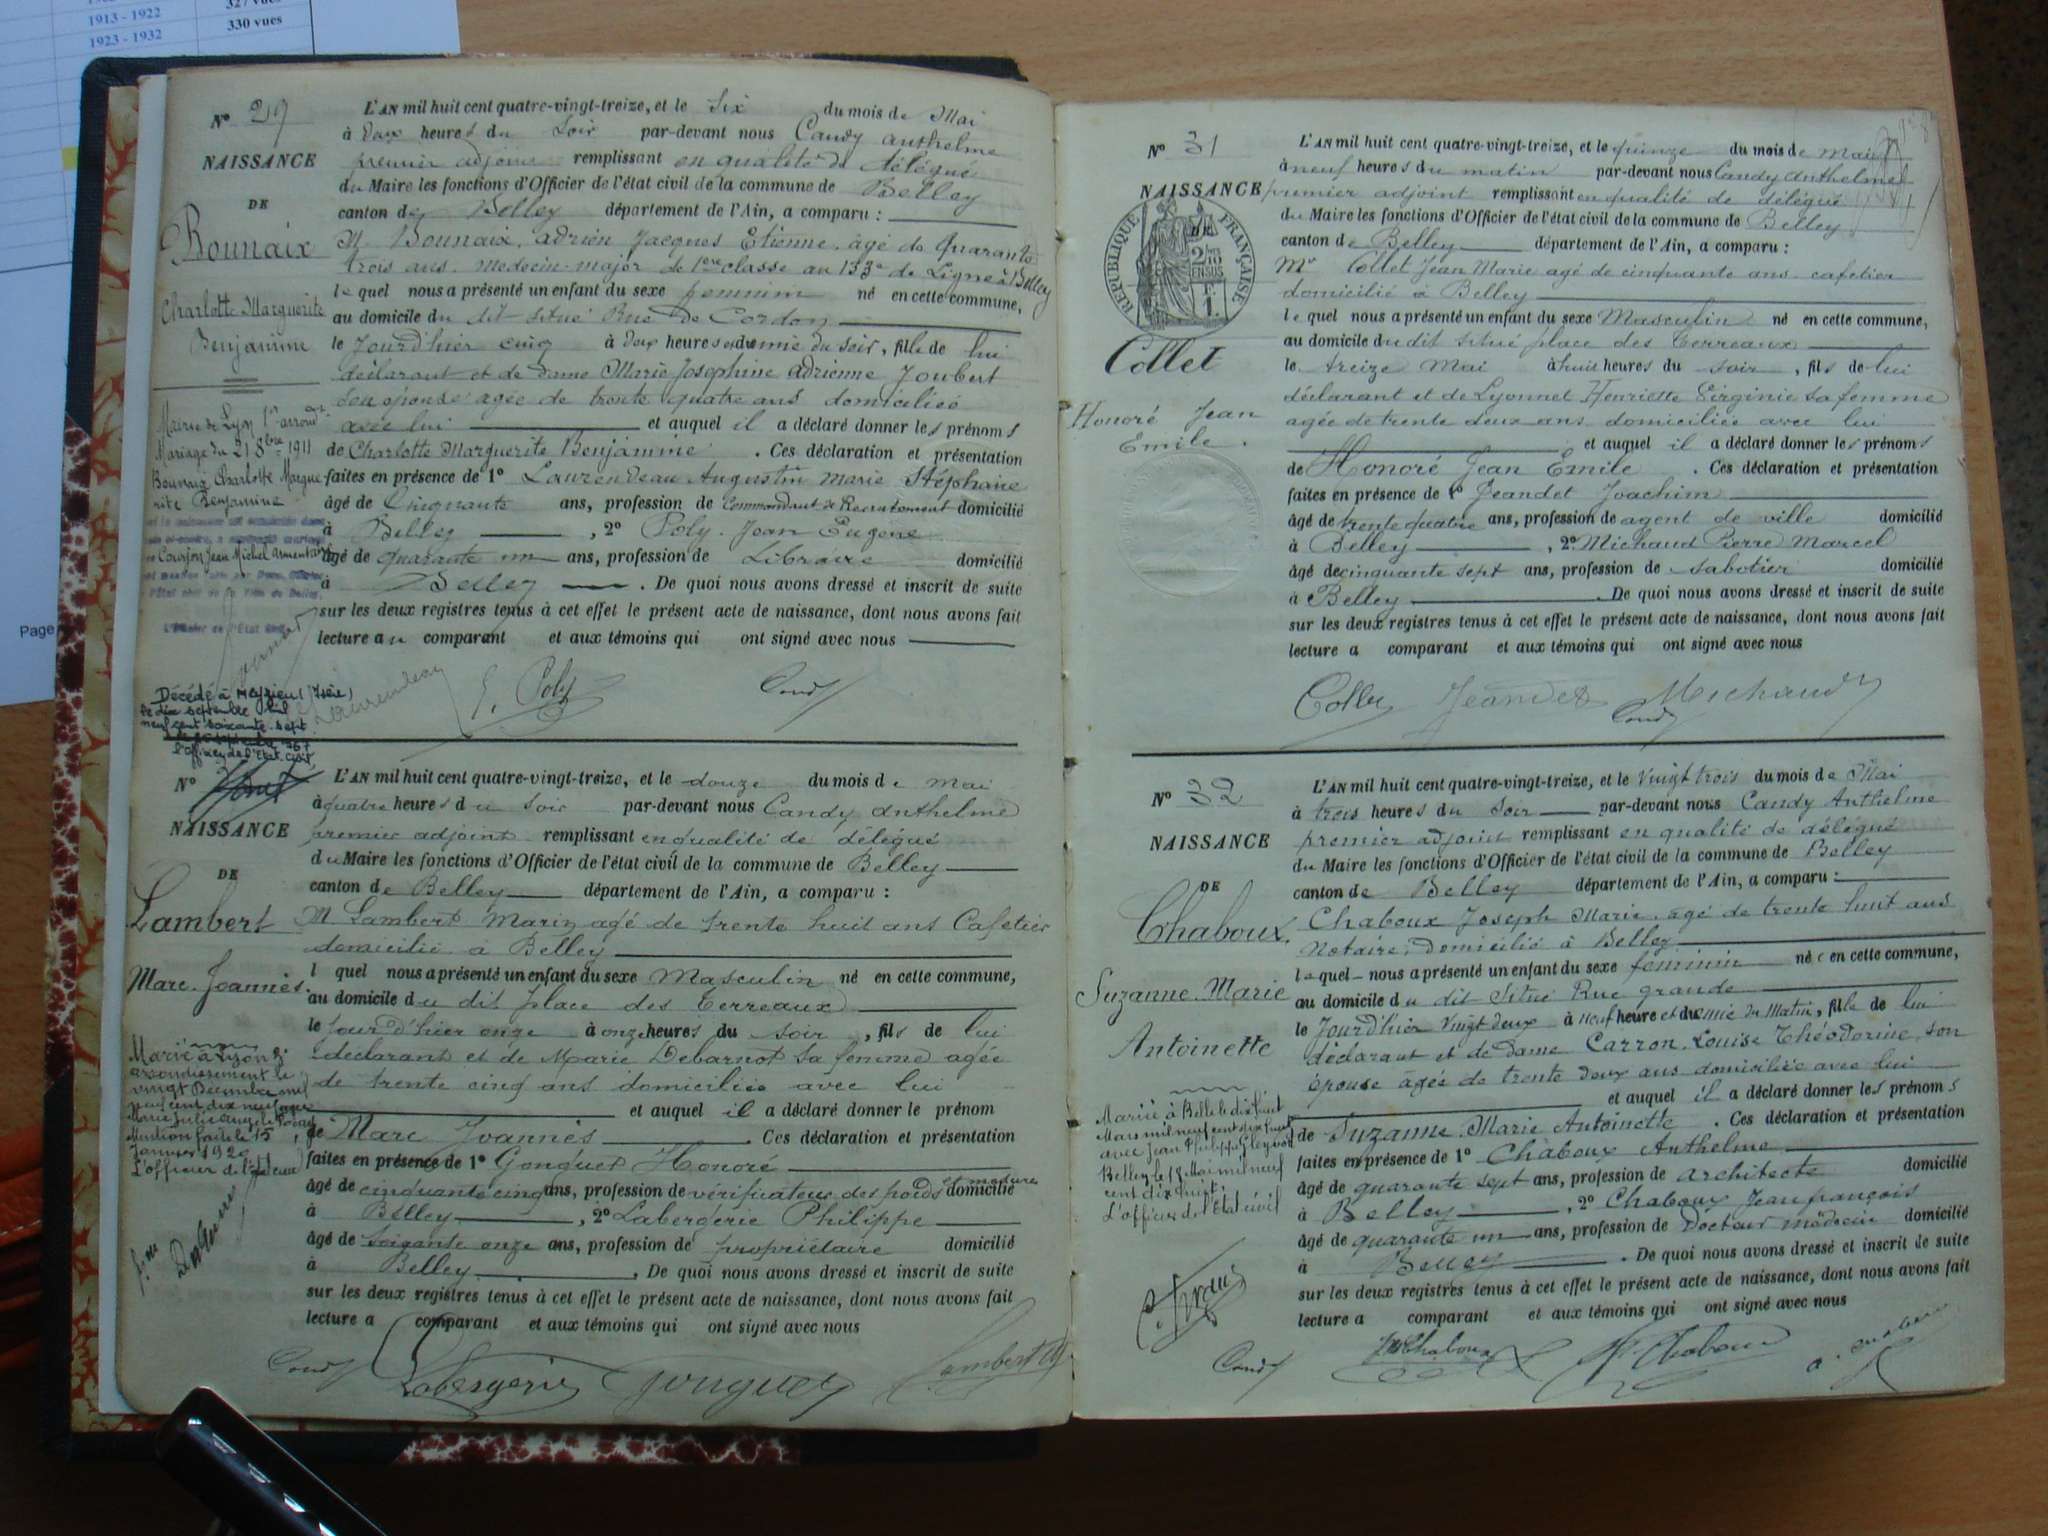 1913 - 1922
327 vues
1923 - 1932
330 vues
Page
Nº 29
NAISSANCE
DE
Bounaix
Charlotte Marguerite
Benjamine
Mairie de Lyon 1er arrondt
Mariage du 21 8bre 1911
Bounaix Charlotte Margue
rite Benjamine
Courjon Jean Michel
l'Etat civil de la Ville de Belley,
L'Officier de l'Etat Civil
Décédé à Meyzieu (Isère)
le dix septembre mil
neuf cent soixante-sept
l'officier de l'Etat Civil,
L'AN mil huit cent quatre-vingt-treize, et le Six du mois de Mai
à Deux heures du Soir par-devant nous Candy Anthelme
premier adjoint remplissant en qualité de délégué
du Maire les fonctions d'Officier de l'état civil de la commune de Belley
canton de Belley département de l'Ain, a comparu :
M. Bounaix, adrien Jacques Etienne, âgé de quarante
trois ans, medecin-major de 1ere classe au 133e de Ligne à Belley
lequel nous a présenté un enfant du sexe feminin né en cette commune,
au domicile du dit situé Rue de Cordon
le Jourd'hier cinq à deux heures et demie du soir, fille de lui
déclarant et de Dame Marie Josephine Adrienne Joubert
son epouse agée de trente quatre ans domiciliée
avec lui et auquel il a déclaré donner les prénoms
de Charlotte Marguerite Benjamine . Ces déclaration et présentation
faites en présence de 1º Laurendeau Augustin Marie Stéphane
âgé de Cinquante ans, profession de Commandant de Recrutement domicilié
à Belley , 2º Poly Jean Eugène
âgé de quarante un ans, profession de Libraire domicilié
à Belley . De quoi nous avons dressé et inscrit de suite
sur les deux registres tenus à cet effet le présent acte de naissance, dont nous avons fait
lecture au comparant et aux témoins qui ont signé avec nous
Laurendeau E. Poly Candy
Nº
NAISSANCE
DE
Lambert
Marc. Joannès.
Marié à Lyon 2e
arrondissement le
vingt Décembre mil
neuf cent dix neuf avec
Mention faite le 15
Janvier 1920
L'officier de l'Etat civil
L'AN mil huit cent quatre-vingt-treize, et le douze du mois de mai
à quatre heures du soir par-devant nous Candy Anthelme
premier adjoint remplissant en qualité de délégué
du Maire les fonctions d'Officier de l'état civil de la commune de Belley
canton de Belley département de l'Ain, a comparu :
M. Lambert Marin agé de trente huit ans Cafetier
domicilié à Belley
lquel nous a présenté un enfant du sexe Masculin né en cette commune,
au domicile du dit place des Terreaux
le jour d'hier onze à onze heures du soir, fils de lui
déclarant et de Marie Debarnot sa femme agée
de trente cinq ans domiciliée avec lui
et auquel il a déclaré donner le prénom
de Marc Joannès . Ces déclaration et présentation
faites en présence de 1º Gonguet Honoré
âgé de cinquante cinq ans, profession de vérificateur des poids et mesures domicilié
à Belley , 2º Labergerie Philippe
âgé de Soixante onze ans, profession de propriétaire domicilié
à Belley . De quoi nous avons dressé et inscrit de suite
sur les deux registres tenus à cet effet le présent acte de naissance, dont nous avons fait
lecture a comparant et aux témoins qui ont signé avec nous
Candy Labergerie Gonguet Lambert
Nº 31
NAISSANCE
DE
RÉPUBLIQUE FRANÇAISE
2/10 EN SUS
F. 1.
Collet
Honoré Jean
Emile.
L'AN mil huit cent quatre-vingt-treize, et le quinze du mois de mai
à neuf heures du matin par-devant nous Candy Anthelme
premier adjoint remplissant en qualité de délégué
du Maire les fonctions d'Officier de l'état civil de la commune de Belley
canton de Belley département de l'Ain, a comparu :
Mr Collet Jean Marie agé de cinquante ans cafetier
domicilié à Belley
lequel nous a présenté un enfant du sexe Masculin né en cette commune,
au domicile du dit situé place des Terreaux
le treize Mai à huit heures du soir , fils de lui
déclarant et de Lyonnet Henriette Virginie sa femme
agée de trente deux ans domiciliée avec lui
et auquel il a déclaré donner les prénoms
de Honoré Jean Emile . Ces déclaration et présentation
faites en présence de 1º Jeandet Joachim
âgé de trente quatre ans, profession de agent de ville domicilié
à Belley , 2º Michaud Pierre Marcel
âgé de cinquante sept ans, profession de sabotier domicilié
à Belley . De quoi nous avons dressé et inscrit de suite
sur les deux registres tenus à cet effet le présent acte de naissance, dont nous avons fait
lecture a comparant et aux témoins qui ont signé avec nous
Collet Jeandet Candy Michaud
Nº 32
NAISSANCE
DE
Chaboux.
Suzanne. Marie
Antoinette
Marié à Belley le dix huit
Mars mil neuf cent dix huit
avec Jean Philippe
Belley le 18 Mai mil neuf
cent dix huit.
L'officier de l'Etat civil
L'AN mil huit cent quatre-vingt-treize, et le Vingt trois du mois de Mai
à trois heures du Soir par-devant nous Candy Anthelme
premier adjoint remplissant en qualité de délégué
du Maire les fonctions d'Officier de l'état civil de la commune de Belley
canton de Belley département de l'Ain, a comparu :
Chaboux Joseph Marie, agé de trente huit ans
Notaire, domicilié à Belley
lequel nous a présenté un enfant du sexe feminin née en cette commune,
au domicile du dit Situé Rue grande
le Jourd'hier Vingt deux à neuf heure et demie du Matin, fille de lui
déclarant et de Dame Carron Louise Théodorine, son
épouse âgée de trente deux ans domiciliée avec lui
et auquel il a déclaré donner les prénoms
de Suzanne Marie Antoinette . Ces déclaration et présentation
faites en présence de 1º Chaboux Anthelme
âgé de quarante sept ans, profession de Architecte domicilié
à Belley , 2º Chaboux Jean françois
âgé de quarante un ans, profession de Docteur médecin domicilié
à Belley . De quoi nous avons dressé et inscrit de suite
sur les deux registres tenus à cet effet le présent acte de naissance, dont nous avons fait
lecture a comparant et aux témoins qui ont signé avec nous
Candy Chaboux Chaboux